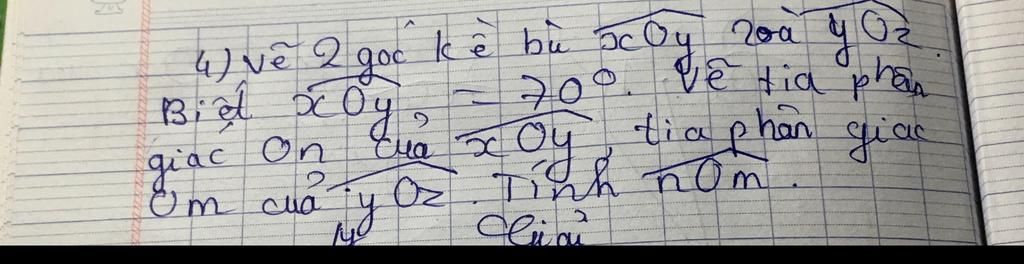 4) Vẽ 2 góc kề bù xOy và yOz.
Biết xOy = 70°. Vẽ tia phân
giác On của xOy, tia phân giác
Om của yOz. Tính nOm.
Giải